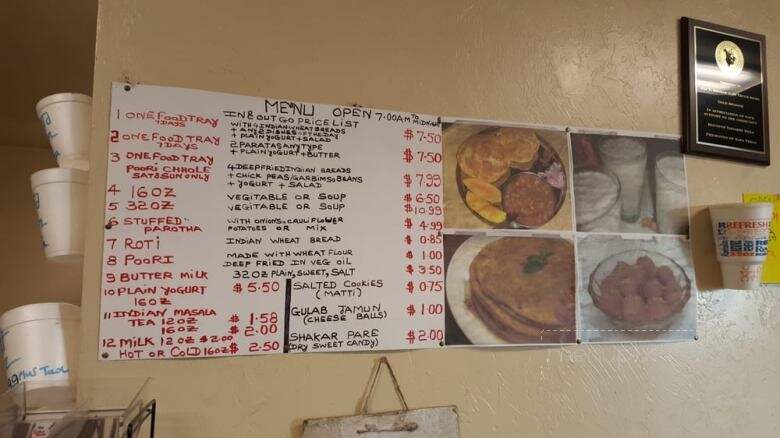 MENU OPEN 7:00AM TO MIDNIGHT
IN & OUT GO PRICE LIST
1 ONE FOOD TRAY
7 DAYS
WITH 4 INDIAN WHEAT BREADS
+ ANY 2 DISHES OF THE DAY
+ PLAIN YOGURT + SALAD
$7.50
2 ONE FOOD TRAY
7 DAYS
2 PARATAS ANY TYPE
+ PLAIN YOGURT + BUTTER
$7.50
3 ONE FOOD TRAY
POORI CHHOLE
SAT & SUN ONLY
4 DEEP FRIED INDIAN BREADS
+ CHICK PEAS/GARBIMSO BEANS
+ YOGURT + SALAD
$7.99
4 16 OZ VEGITABLE OR SOUP $6.50
5 32 OZ VEGITABLE OR SOUP $10.99
6 STUFFED
PAROTHA
WITH ONIONS, CAULIFLOWER
POTATOES OR MIX
$4.99
7 ROTI INDIAN WHEAT BREAD $0.85
8 POORI MADE WITH WHEAT FLOUR
DEEP FRIED IN VEG OIL
$1.00
9 BUTTER MILK 32 OZ PLAIN, SWEET, SALT $3.50
10 PLAIN YOGURT $5.50
16 OZ
11 INDIAN MASALA
TEA 12 OZ $1.58
16 OZ $2.00
12 MILK 12 OZ $2.00
HOT OR COLD 16 OZ $2.50
SALTED COOKIES
(MATTI)
$0.75
GULAB JAMUN
(CHEESE BALLS)
$1.00
SHAKAR PARE
(DRY SWEET CANDY)
$2.00
REFRESH